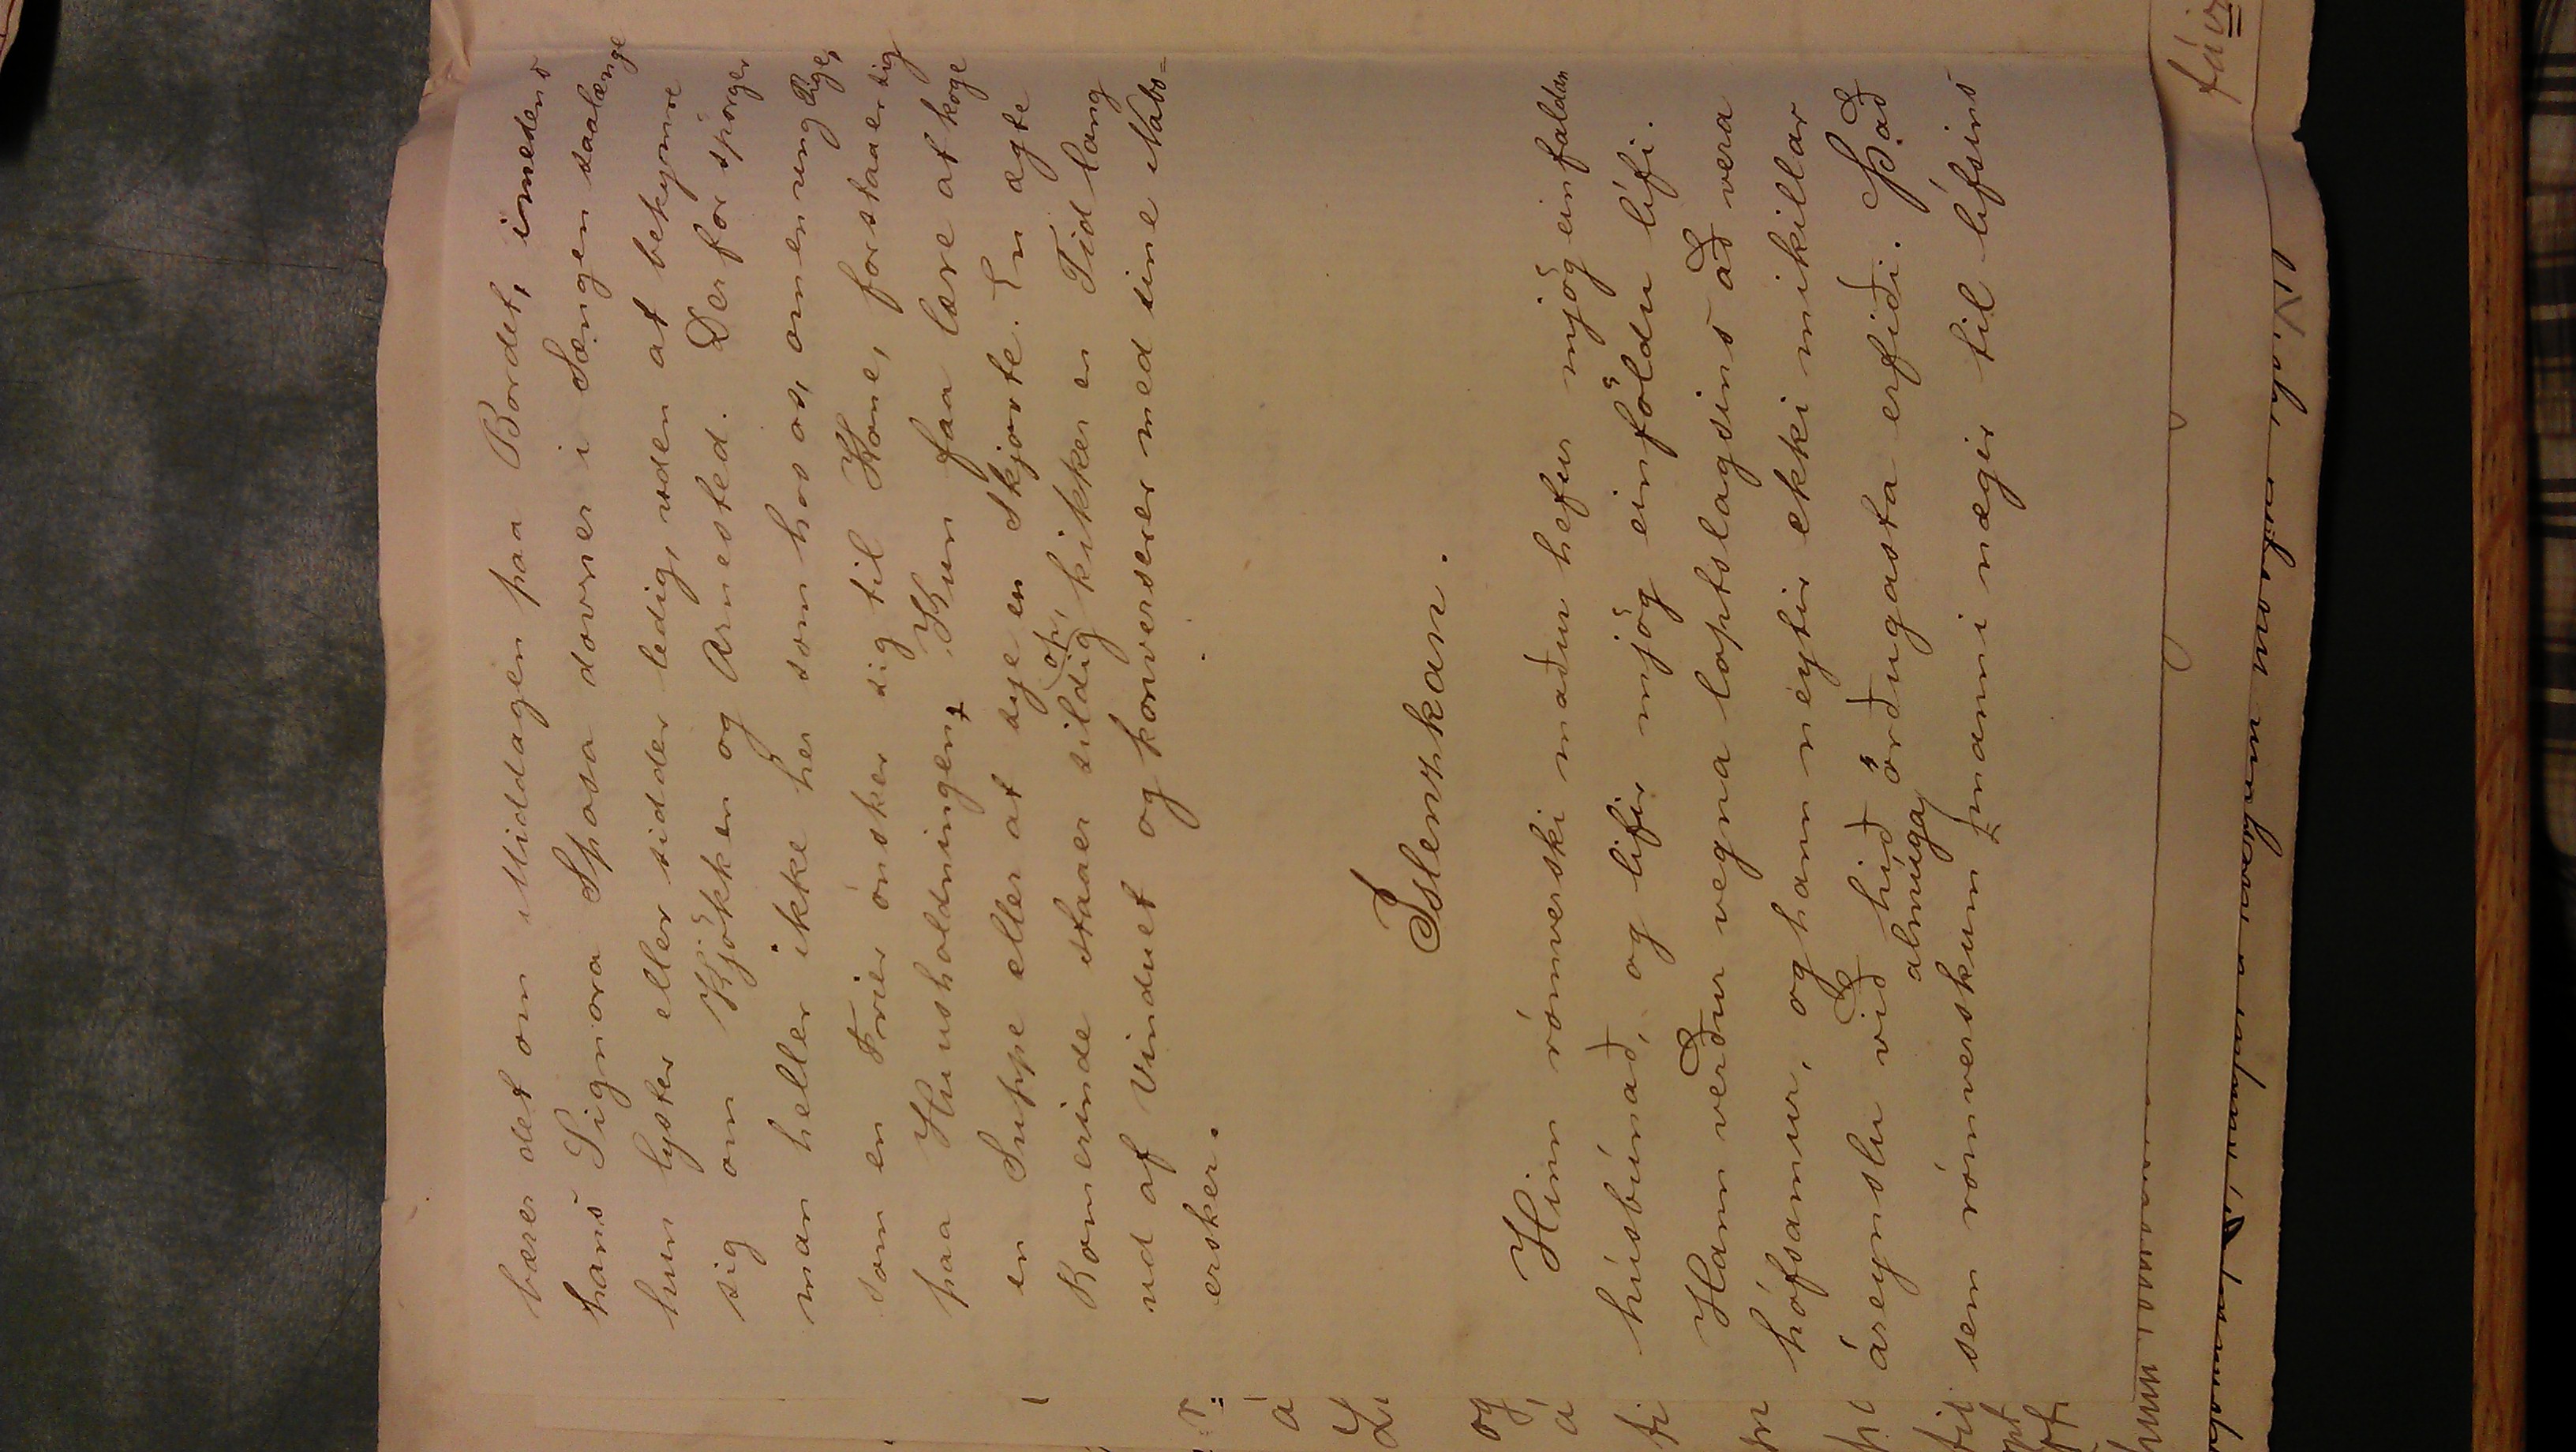 bærer det om Middagen paa Bordet, imedens
hans Signora Sposa dovner i Sængen saalænge
hun lyster eller sidder ledig, uden at bekymre
sig om Kjökken og Arnested. Derfor spörger
man heller ikke her som hos os, om en ung Pige,
som en Frier önsker sig til Kone, forstaaer sig
paa Husholdningen, Kun faa lære at koge
en Suppe eller at sye en Skjorte. En ægte
Romerinde staaer sildig op, kikker en Tid lang
ud af Vinduet og konverserer med sine Nabo-
ersker.
Íslenzkan.
Hinn rómverski maður hefur mjög einfaldan
húsbúnað, og lifir mjög einföldu lífi.
Hann verður vegna loptslagsins að vera
hófsamur, og hann neytir ekki mikillar
áreynslu við hið örðugasta erfiði. Það
sem rómverskum almúgamanni nægir til lífsins